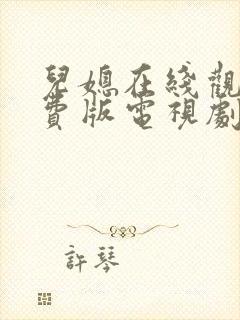 兒媳在綫觀
費版電視劇
許琴